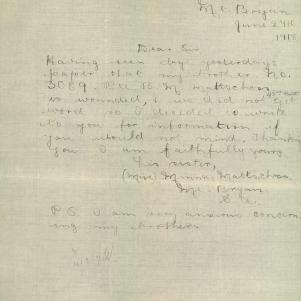 Mt. Bryan
June 24th
1918
Dear Sir
Having seen by yesterdays
paper that my brother No.
3089. Pte B. M. Mattschoss
is wounded, & we did not get
word so I decided to write
to you for information if
you would not mind. Thanking
you I am faithfully yours
his sister,
(Miss) Minna Mattschoss
Mt. Bryan
S. A.
P.S. I am very anxious concern
ing my brother